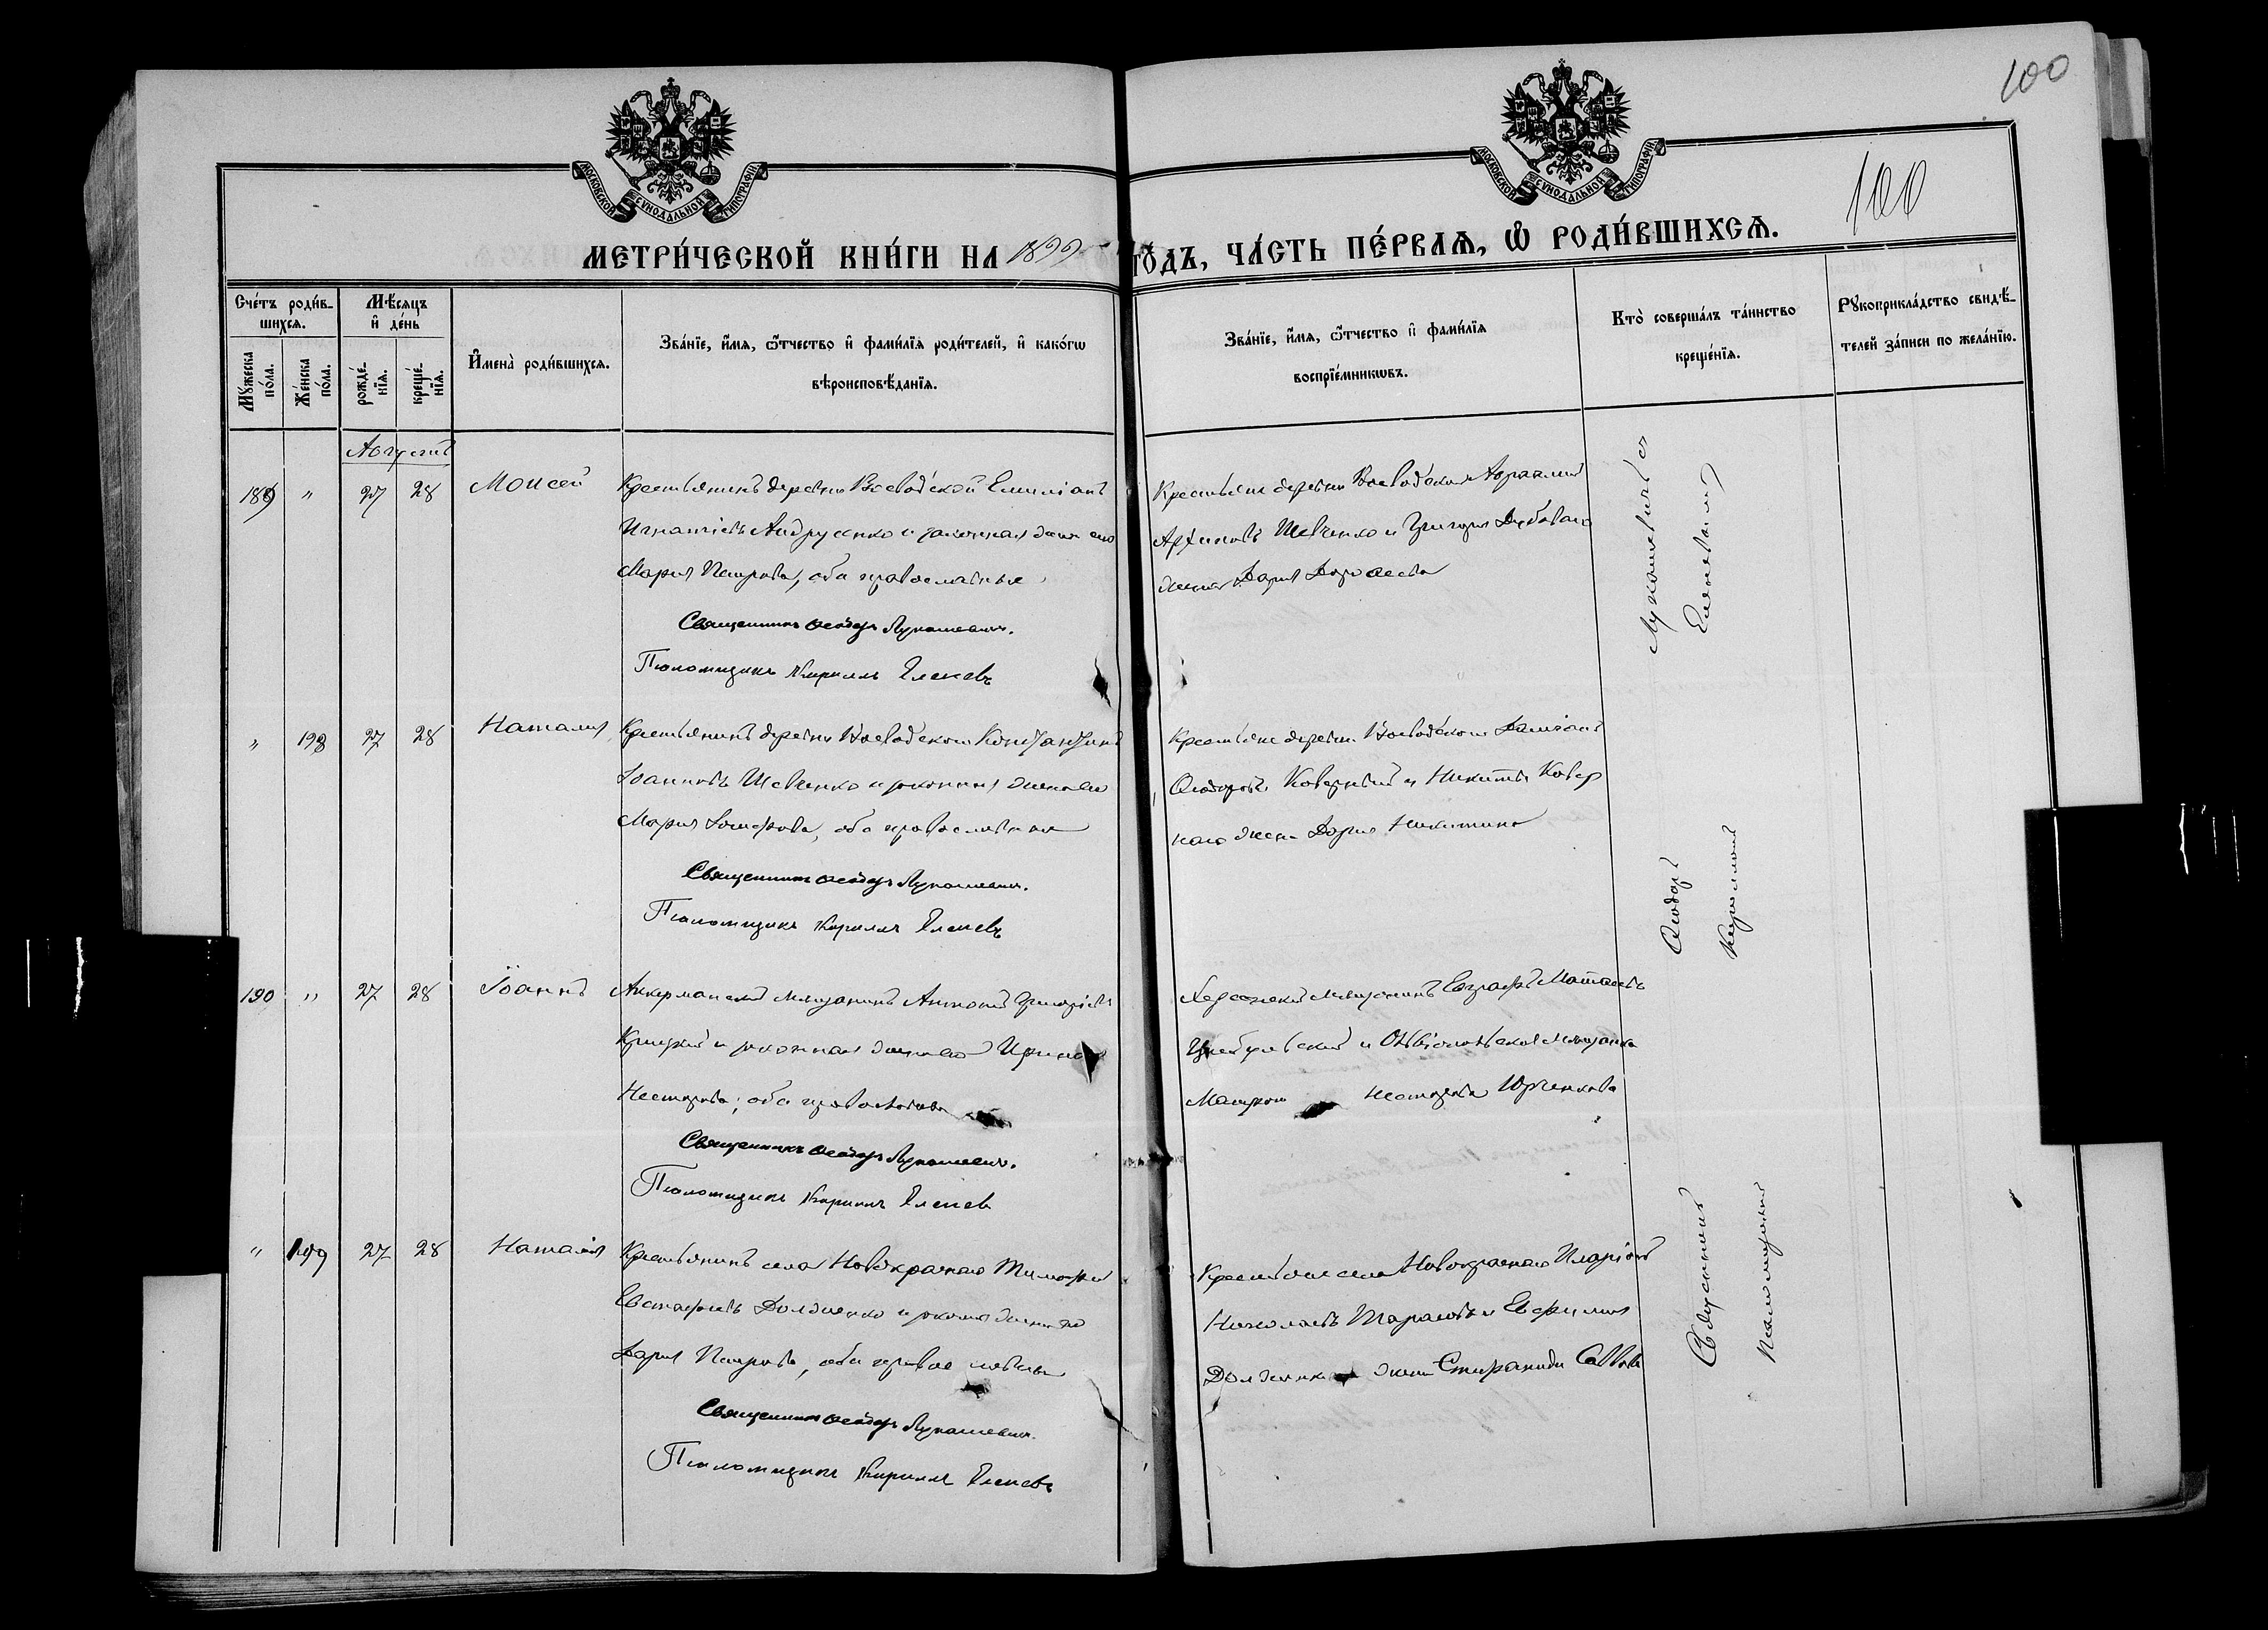 100
МОСКОВСКОЙ СѴНОДАЛЬНОЙ ТИПОГРАФІИ
МОСКОВСКОЙ СѴНОДАЛЬНОЙ ТИПОГРАФІИ
100
МЕТРИ́ЧЕСКОЙ КНИ́ГИ НА 1899 ГО́ДЪ, ЧА́СТЬ ПЕ́РВАѦ, Ѡ҆ РОДИ́ВШИХСѦ.
Сче́тъ роди́в-
шихсѧ.
Мꙋ́жеска
по́ла.
Же́нска
по́ла.
Мѣ́сѧцъ
и҆ де́нь
рожде́-
нїѧ.
креще́-
нїѧ.
И҆мена̀ роди́вшихсѧ.
Зва́нїе, и҆́мѧ, ѻ҆́тчество и҆ фами́лїѧ роди́телей, и҆ како́гѡ
вѣроисповѣ́данїѧ.
Зва́нїе, и҆́мѧ, ѻ҆́тчество и҆ фами́лїѧ
воспрїе́мникѡвъ.
Кто̀ соверша́лъ та́инство
креще́нїѧ.
Рꙋкоприкла́дство свидѣ́-
телей за́писи по жела́нїю.
Августъ
189 " 27 28 Моисей
Крестьянинъ деревни Воеводской Емиліанъ
Игнатіевъ Андрусенко и законная жена его
Марія Петрова, оба православные
Священникъ Ѳеодоръ Лукашевичъ.
Псаломщикъ Кириллъ Еленевъ
Крестьяне деревни Воеводской Авраамій
Архиповъ Шевченко и Григорія Дубоваго
жена Дарія Дороѳеева
" 198 27 28 Наталія
Крестьянинъ деревни Воеводской Константинъ
Іоанновъ Шевченко и законная жена его
Марія, оба православные
Священникъ Ѳеодоръ Лукашевичъ.
Псаломщикъ Кириллъ Еленевъ
Крестьяне деревни Воеводской Даміанъ
Ѳеодоровъ Коверный и Никиты Ковер
наго жена Дарія Никитина
190 " 27 28 Іоаннъ
Аккерманскій мѣщанинъ Антоній Григоріевъ
Крицкій и законная жена его Ирина
Несторова, оба православные
Священникъ Ѳеодоръ Лукашевичъ.
Псаломщикъ Кириллъ Еленевъ
Херсонскій мѣщанинъ Евграфъ Матѳеевъ
Цыбульскій и Овидіопольская мѣщанка
Матрона Несторова Юрченкова
" 199 27 28 Наталія
Крестьянинъ села Новокраснаго Тимоѳей
Евстафіевъ Долженко и законная жена его
Дарія Петрова, оба православные
Священникъ Ѳеодоръ Лукашевичъ.
Псаломщикъ Кириллъ Еленевъ
Крестьяне села Новокраснаго Иларіонъ
Николаевъ Тарасовъ и Евфимія
Долженка жена Стефанида Саввова
Священникъ Ѳеодоръ Лукашевичъ съ
Псаломщикомъ Кирилломъ Еленевымъ